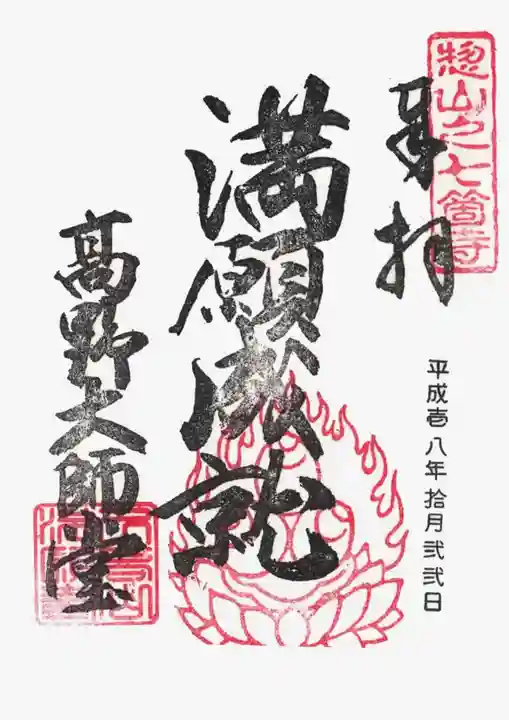 惣山之七箇寺
奉拝
平成壱八年拾月弐弐日
満願成就
高野大師堂